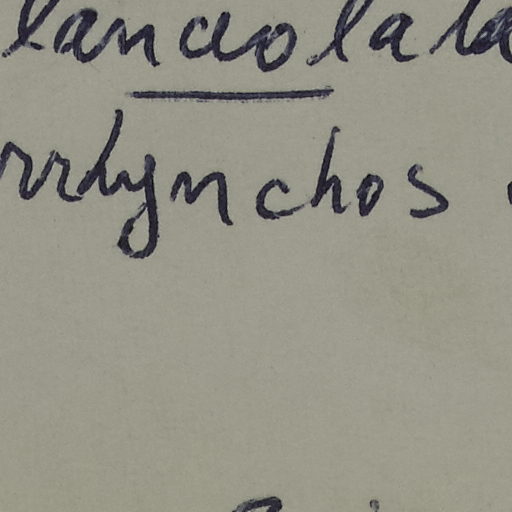 lanceolata
rrhynchos